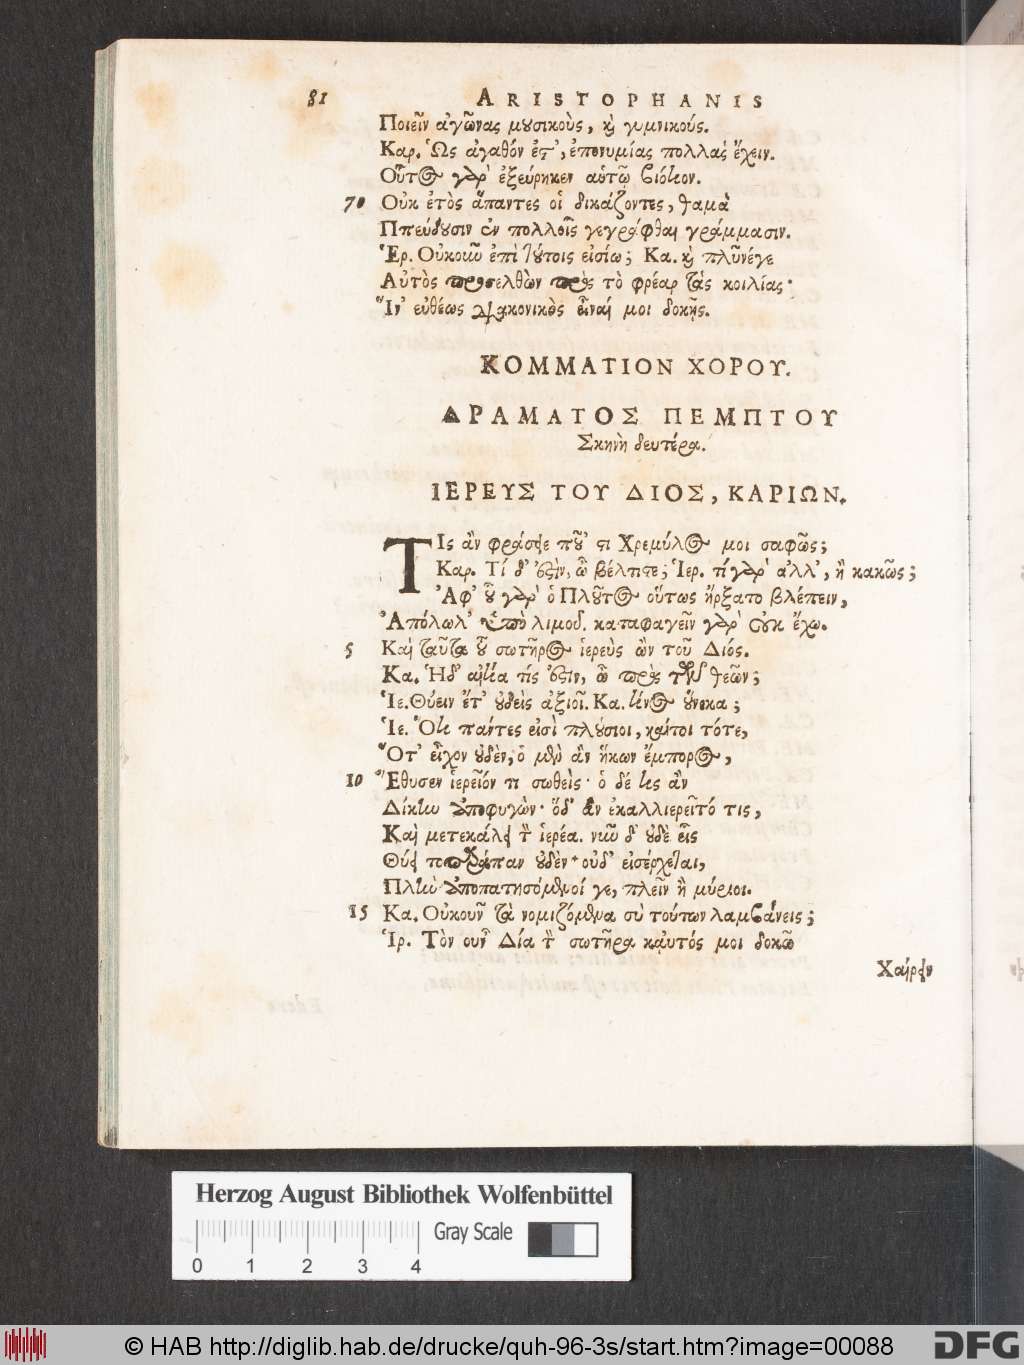 81 ARISTOPHANIS
Ποιεῖν ἀγῶνας μουσικοὺς, καὶ γυμνικούς.
Καρ. Ὡς ἀγαθόν ἐστ', ἐπονυμίας πολλὰς ἔχειν.
Οὗτος γὰρ ἐξεύρηκεν αὑτῷ βιότιον.
70 Οὐκ ἐτὸς ἅπαντες οἱ δικάζοντες, θαμὰ
Σπεύδουσιν ἐν πολλοῖς γεγράφθαι γράμμασιν.
Ἑρ. Οὐκοῦν ἐπὶ τούτοις εἰσίω; Κα. καὶ πλῦνέγε
Αὐτὸς προσελθὼν πρὸς τὸ φρέαρ τὰς κοιλίας·
Ἵν' εὐθέως διακονικὸς εἶναί μοι δοκῇς.
ΚΟΜΜΑΤΙΟΝ ΧΟΡΟΥ.
ΔΡΑΜΑΤΟΣ ΠΕΜΠΤΟΥ
Σκηνὴ δευτέρα.
ΙΕΡΕΥΣ ΤΟΥ ΔΙΟΣ, ΚΑΡΙΩΝ.
ΤΙς ἂν φράσειε ποῦ 'στι Χρεμύλος μοι σαφῶς;
Καρ. Τί δ' ἐστὶν, ὦ βέλτιστε; Ἱερ. τί γὰρ ἀλλ', ἢ κακῶς;
Ἀφ' οὗ γὰρ ὁ Πλοῦτος οὕτως ἤρξατο βλέπειν,
Ἀπόλωλ' ὑπὸ λιμοῦ. καταφαγεῖν γὰρ οὐκ ἔχω.
5 Καὶ ταῦτα τοῦ σωτῆρος ἱερεὺς ὢν τοῦ Διός.
Κα. Ἡδ' αἰτία τίς ἐστιν, ὦ πρὸς τῶν θεῶν;
Ἱε. Θύειν ἔτ' οὐδεὶς ἀξιοῖ. Κα. τίνος οὕνεκα;
Ἱε. Ὅτι πάντες εἰσὶ πλούσιοι, καίτοι τότε,
Ὅτ' εἶχον οὐδὲν, ὁ μὲν ἂν ἥκων ἔμπορος,
10 Ἔθυσεν ἱερεῖόν τι σωθείς· ὁ δέ τις ἂν
Δίκην ἀποφυγών· ὅδ' ἂν ἐκαλλιερεῖτό τις,
Καὶ μετεκάλει τὸν ἱερέα. νῦν δ' οὐδὲ εἷς
Θύει τοπαράπαν οὐδὲν· οὐδ' εἰσέρχεται,
Πλὴν ἀποπατησόμενοί γε, πλεῖν ἢ μύριοι.
15 Κα. Οὐκοῦν τὰ νομιζόμενα σὺ τούτων λαμβάνεις;
Ἱρ. Τὸν οὖν Δία τὸν σωτῆρα καὐτός μοι δοκῶ
Χαίρειν
Herzog August Bibliothek Wolfenbüttel
Gray Scale
0 1 2 3 4
© HAB http://diglib.hab.de/drucke/quh-96-3s/start.htm?image=00088
DFG